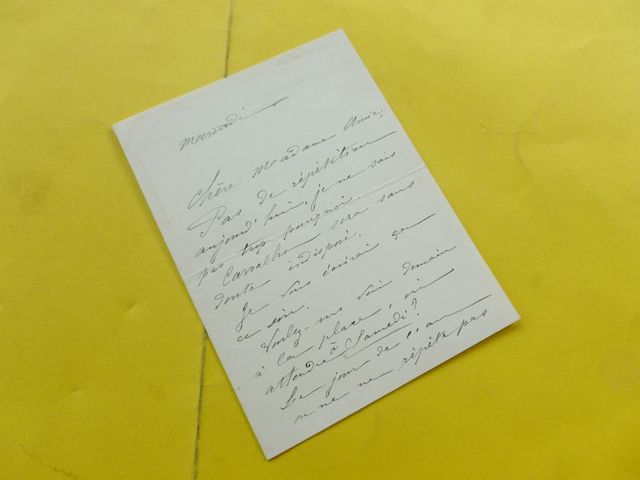 mercredi
Chère Madame Amie,
Pas de répétition
aujourd'hui, je ne sais
pas trop pourquoi
Carvalho sera sans
doute indisposé.
Je vous écrirai ça
ce soir.
Voulez-vous venir demain
à la place, ou
attendre à Samedi?
Le jour de l'an
on ne répète pas